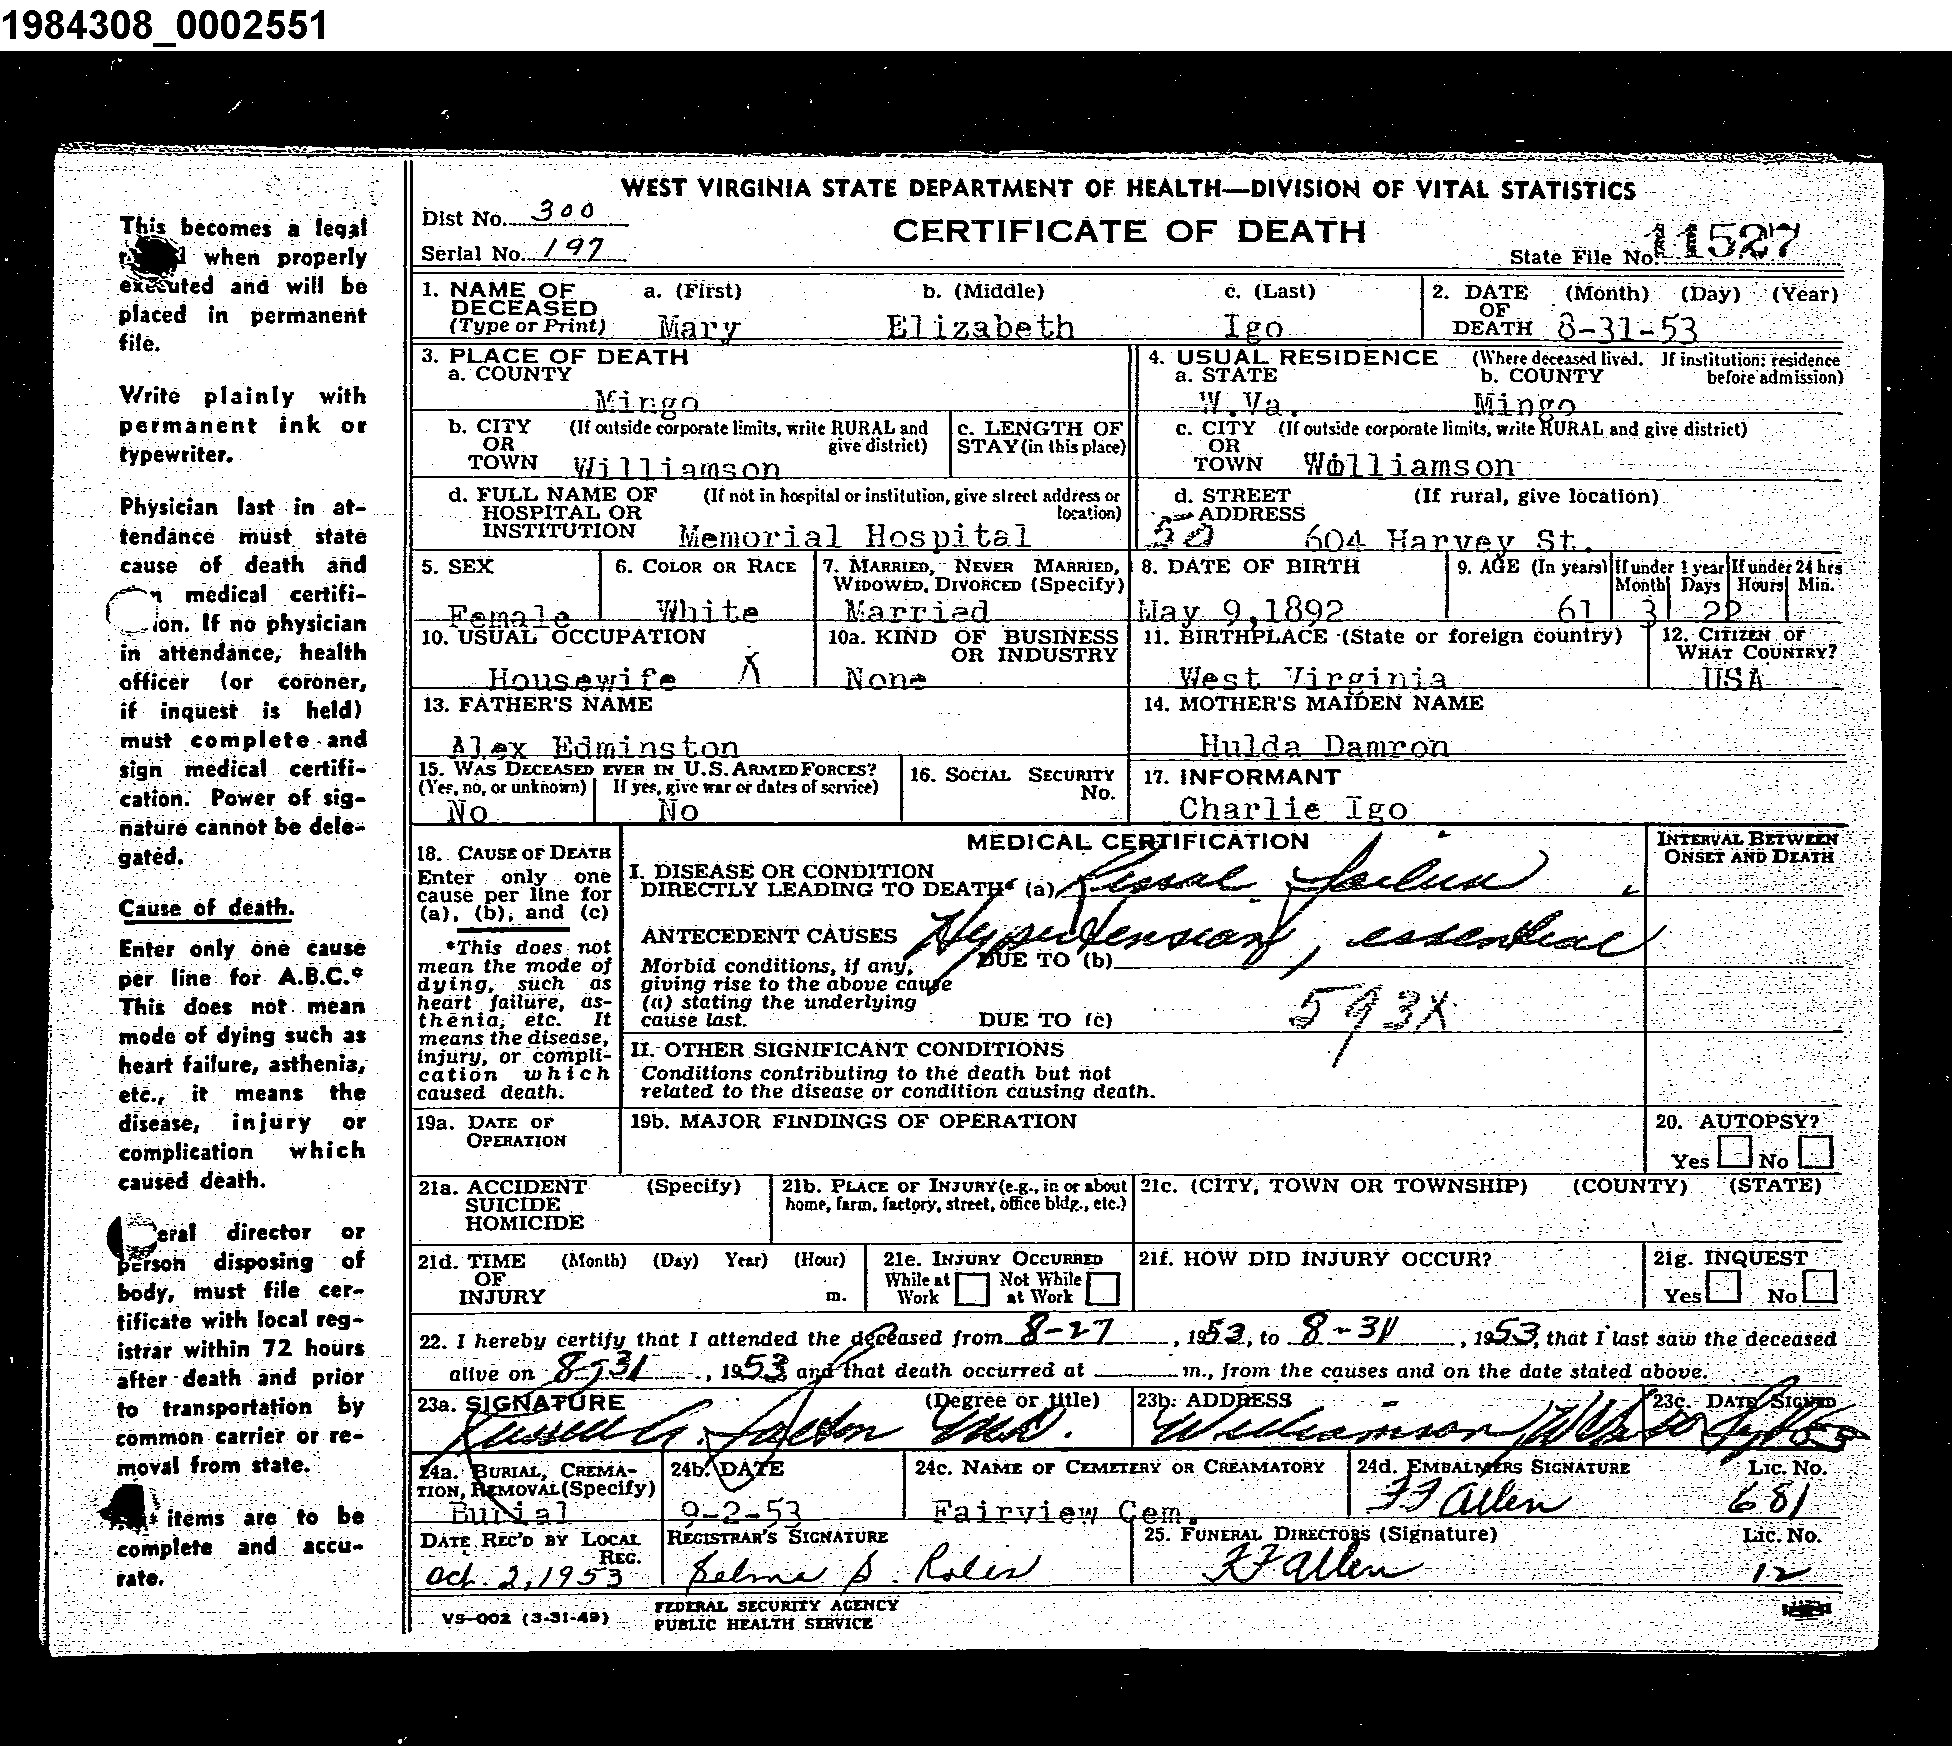 1984308_0002551
This becomes a legal
when properly
executed and will be
placed in permanent
file.
Write plainly with
permanent ink or
typewriter.
Physician last in at-
tendance must state
cause of death and
medical certifi-
ion. If no physician
in attendance, health
officer (or coroner,
if inquest is held)
must complete and
sign medical certifi-
cation. Power of sig-
nature cannot be dele-
gated.
Cause of death.
Enter only one cause
per line for A.B.C.*
This does not mean
mode of dying such as
heart failure, asthenia,
etc., it means the
disease, injury or
complication which
caused death.
eral director or
person disposing of
body, must file cer-
tificate with local reg-
istrar within 72 hours
after death and prior
to transportation by
common carrier or re-
moval from state.
items are to be
complete and accu-
rate.
WEST VIRGINIA STATE DEPARTMENT OF HEALTH—DIVISION OF VITAL STATISTICS
Dist No. 300
CERTIFICATE OF DEATH
Serial No. 197
State File No. 11527
1. NAME OF DECEASED (Type or Print) a. (First) b. (Middle) c. (Last)
Mary Elizabeth Igo
2. DATE OF DEATH (Month) (Day) (Year)
8-31-53
3. PLACE OF DEATH
a. COUNTY
Mingo
4. USUAL RESIDENCE (Where deceased lived. If institution: residence before admission)
a. STATE b. COUNTY
W.Va. Mingo
b. CITY OR TOWN (If outside corporate limits, write RURAL and give district)
Williamson
c. LENGTH OF STAY (in this place)
c. CITY OR TOWN (If outside corporate limits, write RURAL and give district)
Williamson
d. FULL NAME OF HOSPITAL OR INSTITUTION (If not in hospital or institution, give street address or location)
Memorial Hospital
d. STREET ADDRESS (If rural, give location)
50 604 Harvey St.
5. SEX
Female
6. COLOR OR RACE
White
7. MARRIED, NEVER MARRIED, WIDOWED, DIVORCED (Specify)
Married
8. DATE OF BIRTH
May 9,1892
9. AGE (In years) If under 1 year Month Days If under 24 hrs Hours Min.
61 3 22
10. USUAL OCCUPATION
Housewife X
10a. KIND OF BUSINESS OR INDUSTRY
None
11. BIRTHPLACE (State or foreign country)
West Virginia
12. CITIZEN OF WHAT COUNTRY?
USA
13. FATHER'S NAME
Alex Edminston
14. MOTHER'S MAIDEN NAME
Hulda Damron
15. WAS DECEASED EVER IN U.S. ARMED FORCES?
(Yes, no, or unknown) If yes, give war or dates of service)
No No
16. SOCIAL SECURITY No.
17. INFORMANT
Charlie Igo
18. CAUSE OF DEATH
Enter only one
cause per line for
(a), (b), and (c)
*This does not
mean the mode of
dying, such as
heart failure, as-
thenia, etc. It
means the disease,
injury, or compli-
cation which
caused death.
MEDICAL CERTIFICATION
INTERVAL BETWEEN ONSET AND DEATH
I. DISEASE OR CONDITION
DIRECTLY LEADING TO DEATH* (a) Renal Failure
ANTECEDENT CAUSES Hypertension, essential
Morbid conditions, if any, DUE TO (b)
giving rise to the above cause
(a) stating the underlying
cause last. DUE TO (c) 593X
II. OTHER SIGNIFICANT CONDITIONS
Conditions contributing to the death but not
related to the disease or condition causing death.
19a. DATE OF OPERATION
19b. MAJOR FINDINGS OF OPERATION
20. AUTOPSY?
Yes No
21a. ACCIDENT SUICIDE HOMICIDE (Specify)
21b. PLACE OF INJURY (e.g., in or about home, farm, factory, street, office bldg., etc.)
21c. (CITY, TOWN OR TOWNSHIP) (COUNTY) (STATE)
21d. TIME OF INJURY (Month) (Day) Year) (Hour) m.
21e. INJURY OCCURRED
While at Work Not While at Work
21f. HOW DID INJURY OCCUR?
21g. INQUEST
Yes No
22. I hereby certify that I attended the deceased from 8-27, 1953, to 8-31, 1953, that I last saw the deceased
alive on 8-31, 1953 and that death occurred at m., from the causes and on the date stated above.
23a. SIGNATURE (Degree or title)
Russell A. Salton M.D.
23b. ADDRESS
Williamson W Va
23c. DATE SIGNED
24a. BURIAL, CREMA-
TION, REMOVAL (Specify)
Burial
24b. DATE
9-2-53
24c. NAME OF CEMETERY OR CREAMATORY
Fairview Cem.
24d. EMBALMERS SIGNATURE Lic. No.
FF Allen 681
DATE REC'D BY LOCAL REG.
Oct. 2, 1953
REGISTRAR'S SIGNATURE
Selma S. Roles
25. FUNERAL DIRECTORS (Signature) Lic. No.
FF Allen 12
VS-002 (3-31-49)
FEDERAL SECURITY AGENCY
PUBLIC HEALTH SERVICE